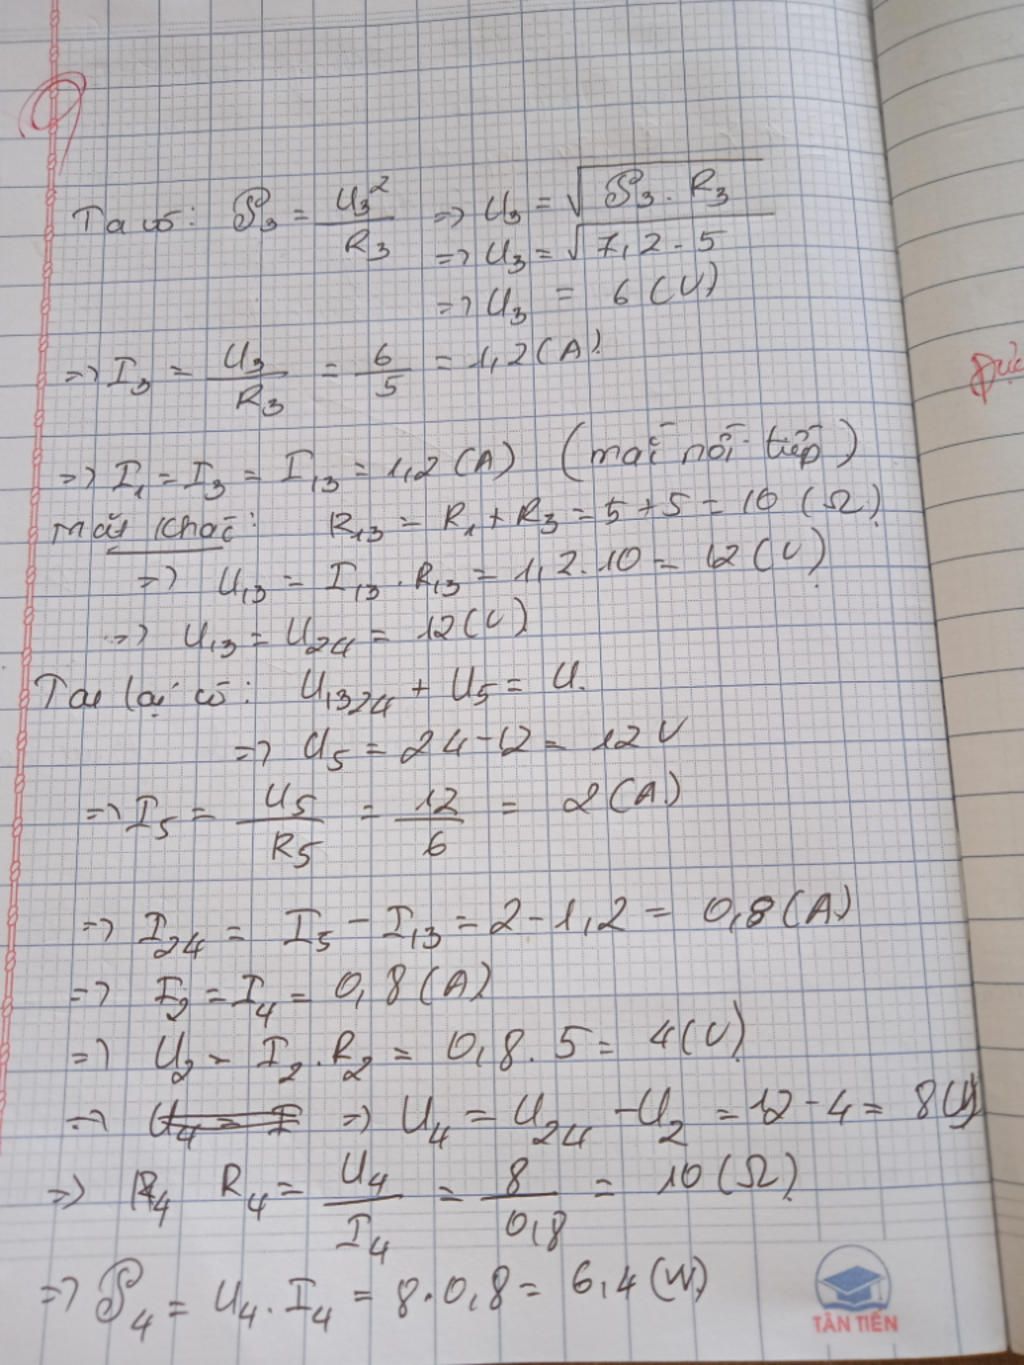 Ta có: P₃ = U₃²/R₃ => U₃ = √(P₃.R₃)
=> U₃ = √(7,2.5)
=> U₃ = 6 (V)
=> I₃ = U₃/R₃ = 6/5 = 1,2 (A)
=> I₁ = I₃ = I₁₃ = 1,2 (A) (mắc nối tiếp)
Mặt khác: R₁₃ = R₁ + R₃ = 5 + 5 = 10 (Ω)
=> U₁₃ = I₁₃.R₁₃ = 1,2.10 = 12 (V)
=> U₁₃ = U₂₄ = 12 (V)
Ta lại có: U₁₃₂₄ + U₅ = U
=> U₅ = 24 - 12 = 12V
=> I₅ = U₅/R₅ = 12/6 = 2 (A)
=> I₂₄ = I₅ - I₁₃ = 2 - 1,2 = 0,8 (A)
=> I₂ = I₄ = 0,8 (A)
=> U₂ = I₂.R₂ = 0,8.5 = 4 (V)
=> U₄ = I => U₄ = U₂₄ - U₂ = 12 - 4 = 8 (V)
=> R₄ R₄ = U₄/I₄ = 8/0,8 = 10 (Ω)
=> P₄ = U₄.I₄ = 8.0,8 = 6,4 (W)
TÂN TIẾN